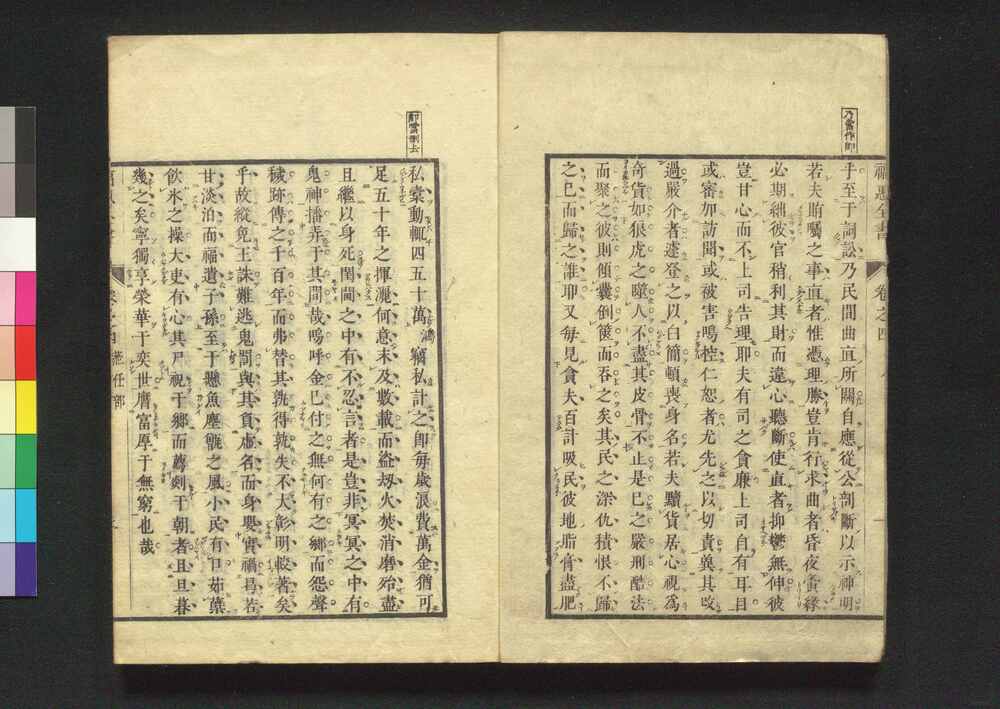 乃當作即
福惠全書 卷之四
乎至于詞訟乃民間曲直所關自應從公剖斷以示神明
若夫賄囑之事直者惟憑理勝豈肯行求曲者昏夜夤緣
必期絀彼官稍利其財而違心聽斷使直者抑鬱無伸彼
豈甘心而不上司告理耶夫有司之貪廉上司自有耳目
或審加訪聞或被害鳴控仁恕者尤先之以切責冀其改
過嚴介者遂登之以白簡頓喪身名若夫黷貨居心視爲
奇貨如狼虎之噬人不盡其皮骨不止是巳之嚴刑酷法
而聚之彼則傾囊倒篋而吞之矣其民之深仇積恨不歸
之巳而歸之誰耶又每見貪夫百計吸民彼地脂膏盡肥
私橐動輒四五十萬滿竊私計之即每歲浪費萬金猶可
足五十年之揮灑何意未及數載而盜刧火焚消磨殆盡
且繼以身死閨閫之中有不忍言者是豈非冥冥之中有
鬼神播弄于其間哉嗚呼金已付之無何有之鄉而怨聲
穢跡傳之千百年而弗替其孰得孰失不大彰明較著矣
乎故縱免王誅難逃鬼罰與其負虛名而身嬰實禍曷若
甘淡泊而福遺子孫至于懸魚塵甑之風小民有口茹蘗
飲氷之操大吏有心其尸祝于鄉而薦剡于朝者且旦暮
幾之矣寧獨享榮華于奕世膺富厚于無窮也哉
四 涖任部